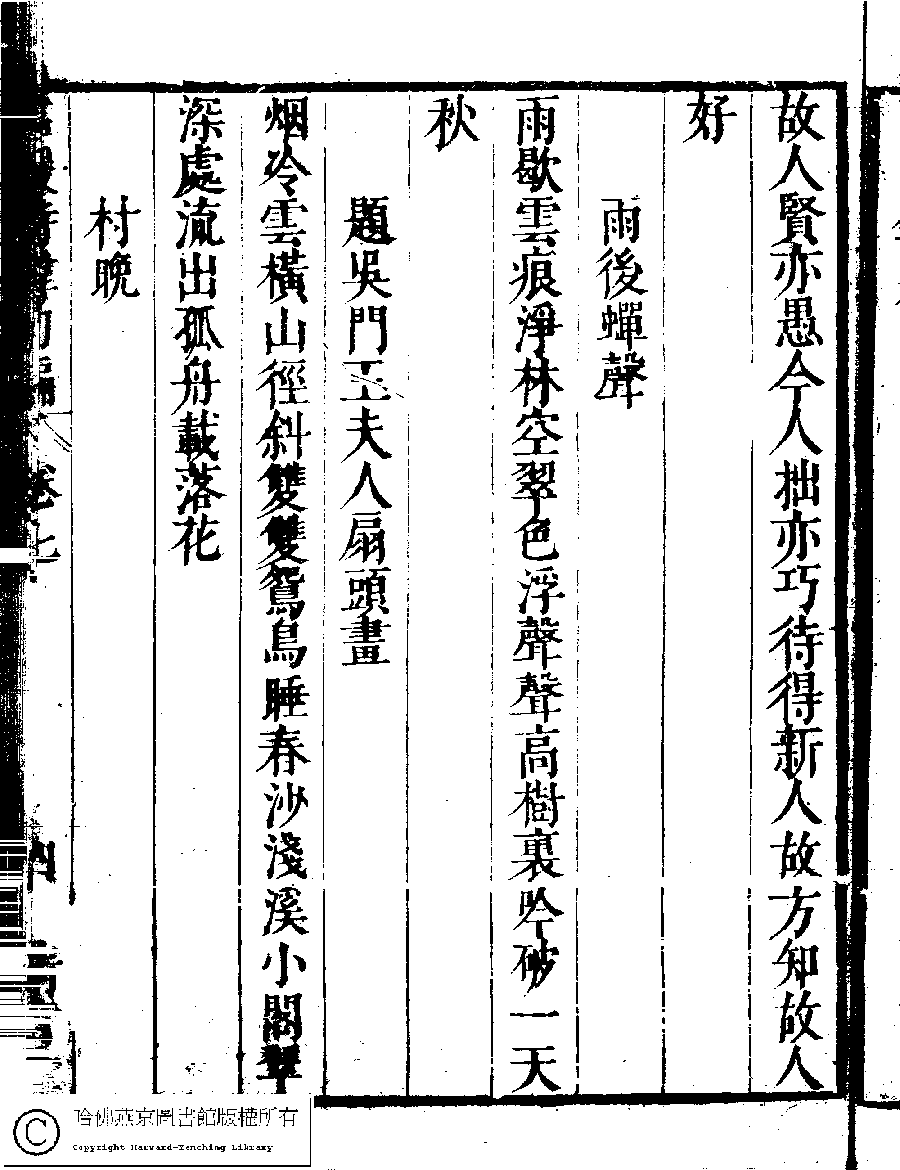 故人賢亦愚今人拙亦巧待得新人故方知故人
好
雨後蟬聲
雨歇雲痕淨林空翠色浮聲聲高樹裏吟破一天
秋
題吳門王夫人扇頭畫
烟冷雲橫山徑斜雙雙鴛鳥睡春沙淺溪小閣翠
深處流出孤舟載落花
村晩
卷七
四
哈佛燕京圖書館版權所有
Copyright Harvard-Yenching Library